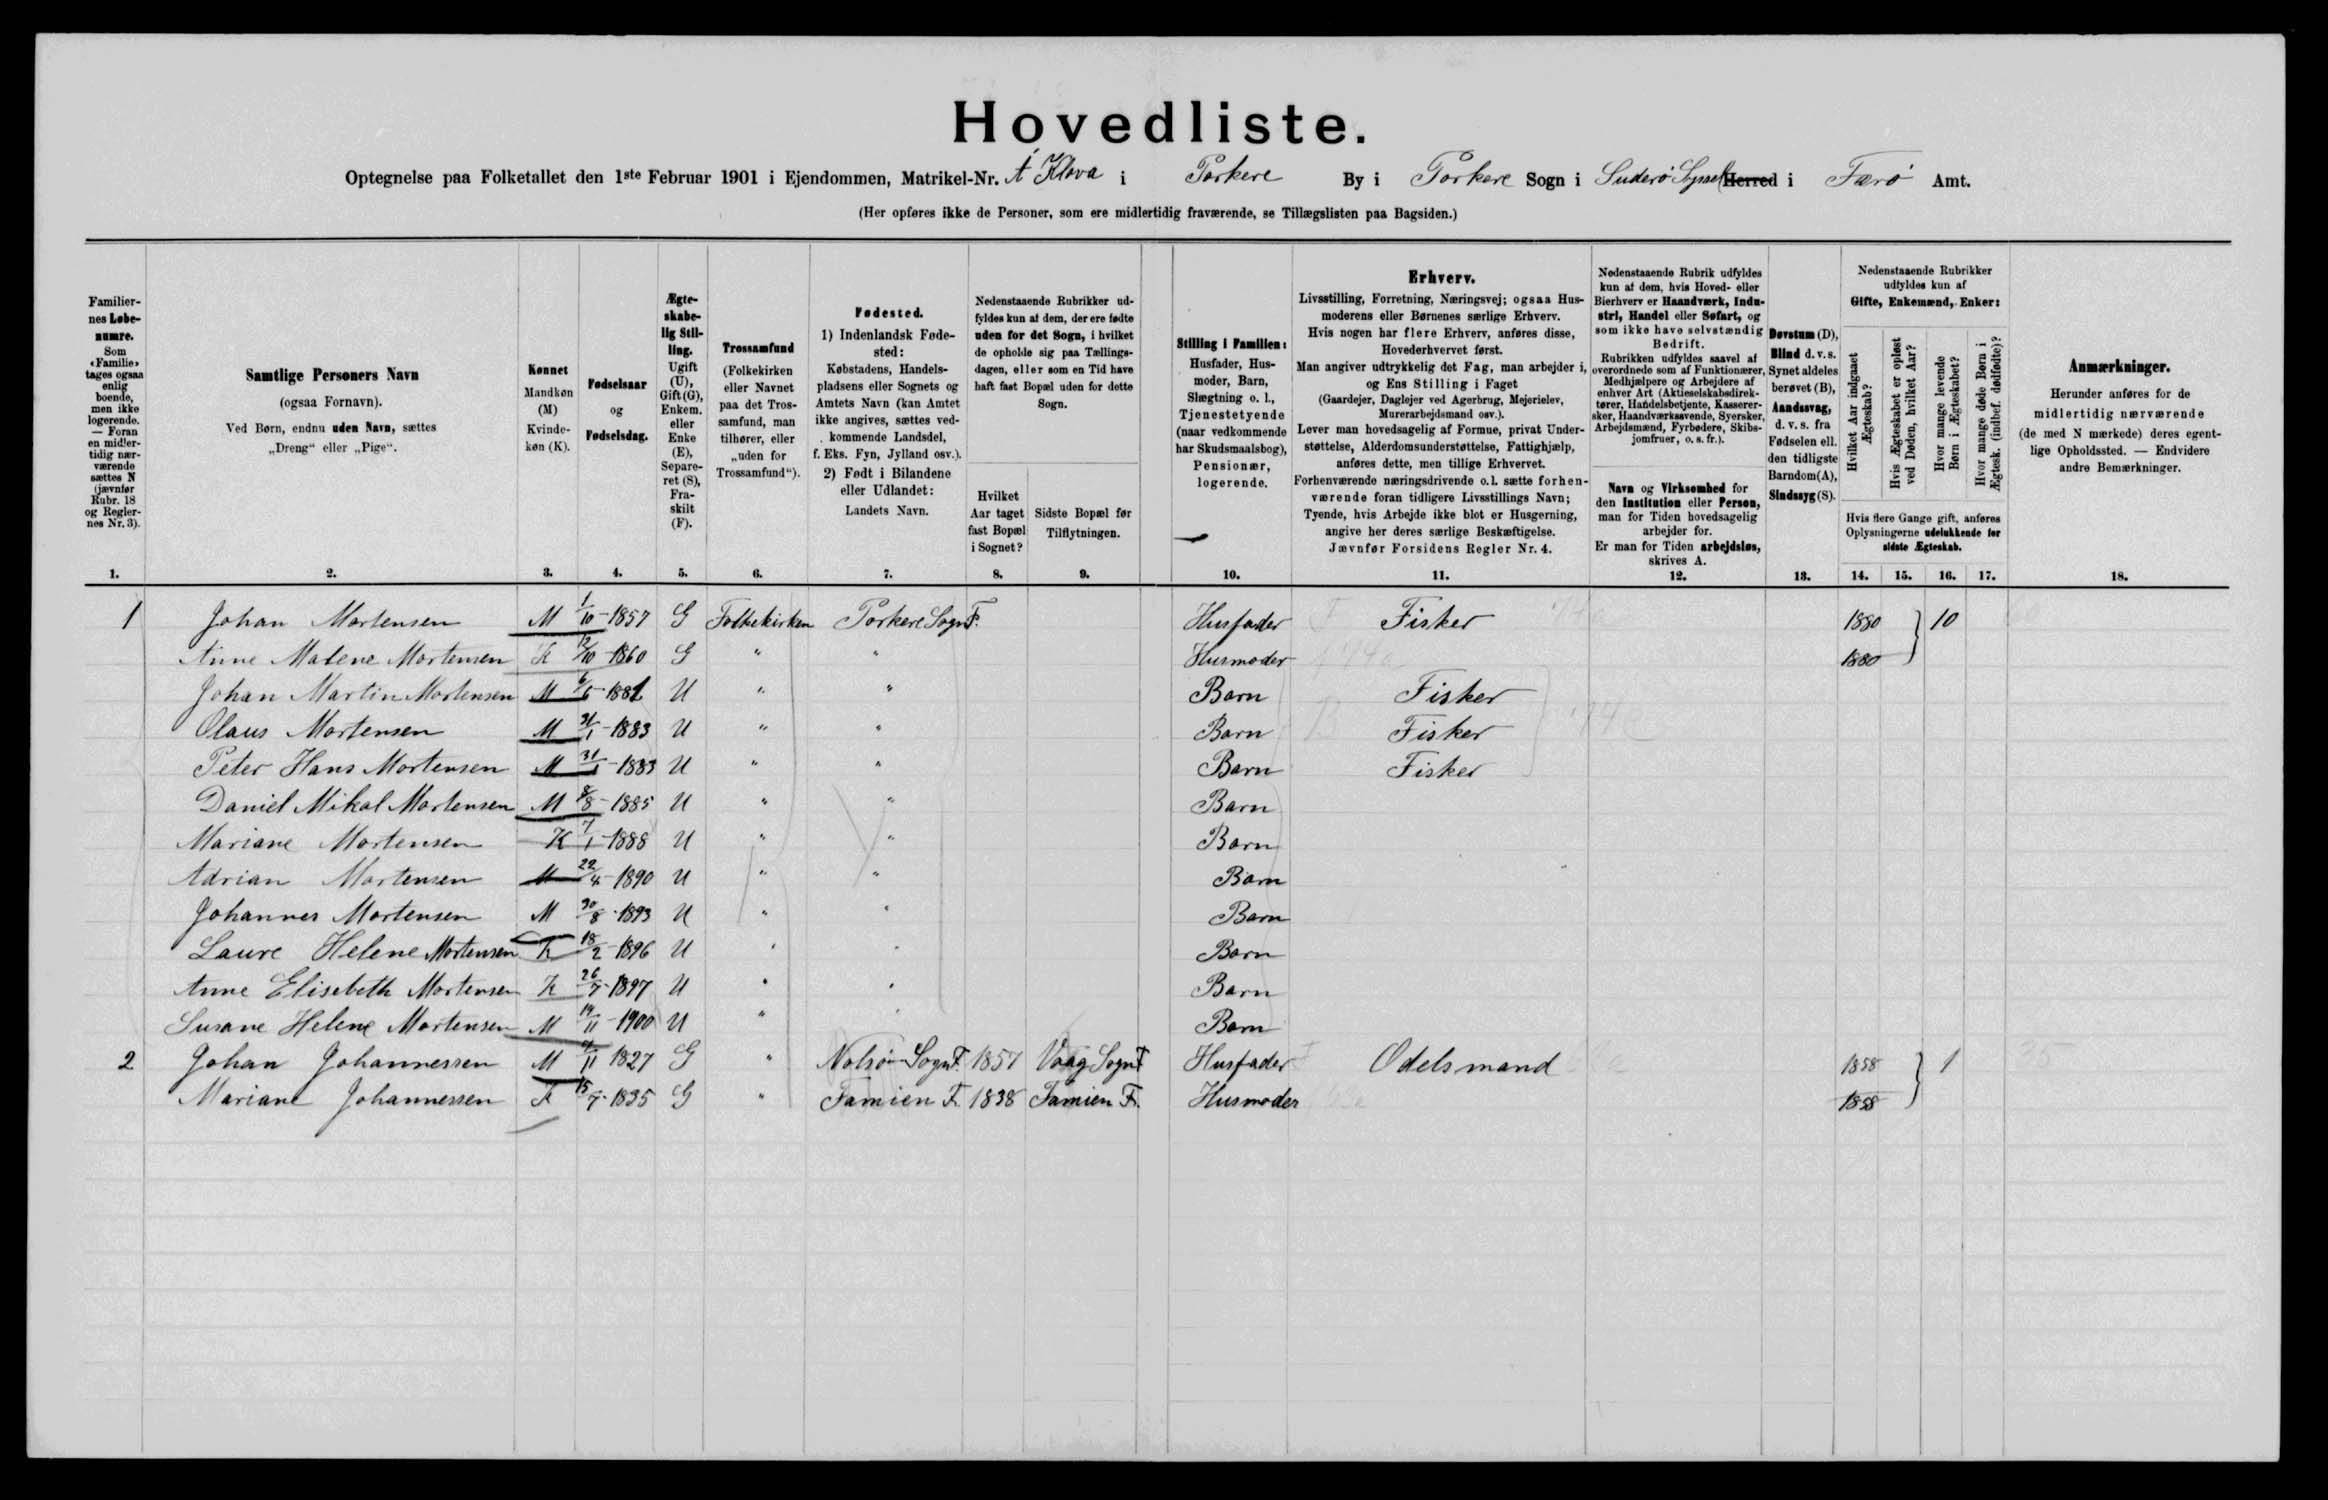 Hovedliste.
Optegnelse paa Folketallet den 1ste Februar 1901 i Ejendommen, Matrikel-Nr. Á Klova i Porkere By i Porkere Sogn i Suderø Syssel Herred i Færø Amt.
(Her opføres ikke de Personer, som ere midlertidig fraværende, se Tillægslisten paa Bagsiden.)
Familiernes Løbenumre.
Som «Familie» tages ogsaa enlig boende, men ikke logerende. — Foran en midlertidig nærværende sættes N (jævnfør Rubr. 18 og Reglernes Nr. 3).
Samtlige Personers Navn
(ogsaa Fornavn).
Ved Børn, endnu uden Navn, sættes
„Dreng“ eller „Pige“.
Kønnet
Mandkøn (M) Kvindekøn (K).
Fødselsaar og Fødselsdag.
Ægteskabelig Stilling.
Ugift (U), Gift (G), Enkem. eller Enke (E), Separeret (S), Fraskilt (F).
Trossamfund
(Folkekirken eller Navnet paa det Trossamfund, man tilhører, eller „uden for Trossamfund“).
Fødested.
1) Indenlandsk Fødested:
Købstadens, Handelspladsens eller Sognets og Amtets Navn (kan Amtet ikke angives, sættes vedkommende Landsdel, f. Eks. Fyn, Jylland osv.).
2) Født i Bilandene eller Udlandet:
Landets Navn.
Nedenstaaende Rubrikker udfyldes kun af dem, der ere fødte uden for det Sogn, i hvilket de opholde sig paa Tællingsdagen, eller som en Tid have haft fast Bopæl uden for dette Sogn.
Hvilket Aar taget fast Bopæl i Sognet?
Sidste Bopæl før Tilflytningen.
Stilling i Familien:
Husfader, Husmoder, Barn, Slægtning o. l., Tjenestetyende (naar vedkommende har Skudsmaalsbog), Pensionær, logerende.
Erhverv.
Livsstilling, Forretning, Næringsvej; ogsaa Husmoderens eller Børnenes særlige Erhverv.
Hvis nogen har flere Erhverv, anføres disse, Hovederhvervet først.
Man angiver udtrykkelig det Fag, man arbejder i, og Ens Stilling i Faget
(Gaardejer, Daglejer ved Agerbrug, Mejerielev, Murerarbejdsmand osv.).
Lever man hovedsagelig af Formue, privat Understøttelse, Alderdomsunderstøttelse, Fattighjælp, anføres dette, men tillige Erhvervet.
Forhenværende næringsdrivende o.l. sætte forhenværende foran tidligere Livsstillings Navn;
Tyende, hvis Arbejde ikke blot er Husgerning, angive her deres særlige Beskæftigelse.
Jævnfør Forsidens Regler Nr. 4.
Nedenstaaende Rubrik udfyldes kun af dem, hvis Hoved- eller Bierhverv er Haandværk, Industri, Handel eller Søfart, og som ikke have selvstændig Bedrift.
Rubrikken udfyldes saavel af overordnede som af Funktionærer, Medhjælpere og Arbejdere af enhver Art (Aktieselskabsdirektører, Handelsbetjente, Kasserersker, Haandværkssvende, Syersker, Arbejdsmænd, Fyrbødere, Skibsjomfruer, o. s. fr.).
Navn og Virksomhed for den Institution eller Person, man for Tiden hovedsagelig arbejder for.
Er man for Tiden arbejdsløs, skrives A.
Døvstum (D), Blind d. v. s. Synet aldeles berøvet (B), Aandssvag, d. v. s. fra Fødselen ell. den tidligste Barndom (A), Sindssyg (S).
Nedenstaaende Rubrikker udfyldes kun af
Gifte, Enkemænd, Enker:
Hvilket Aar indgaaet Ægteskab?
Hvis Ægteskabet er opløst ved Døden, hvilket Aar?
Hvor mange levende Børn i Ægteskabet?
Hvor mange døde Børn i Ægtesk. (indbef. dødfødte)?
Hvis flere Gange gift, anføres Oplysningerne udelukkende for sidste Ægteskab.
Anmærkninger.
Herunder anføres for de midlertidig nærværende (de med N mærkede) deres egentlige Opholdssted. — Endvidere andre Bemærkninger.
1. 2. 3. 4. 5. 6. 7. 8. 9. 10. 11. 12. 13. 14. 15. 16. 17. 18.
1 Johan Mortensen M 1/10-1857 G Folkekirken Porkere Sogn F. Husfader Fisker 1880 } 10
Anne Malene Mortensen K 12/10-1860 G " " Husmoder 1880
Johan Martin Mortensen M 1881 U " " Barn Fisker
Olaus Mortensen M 31/1-1883 U " " Barn Fisker
Peter Hans Mortensen M 31/1-1883 U " " Barn Fisker
Daniel Mikal Mortensen M 8/8-1885 U " " Barn
Mariane Mortensen K 7/1-1888 U " " Barn
Adrian Mortensen M 22/4-1890 U " " Barn
Johannes Mortensen M 30/8-1893 U " " Barn
Laure Helene Mortensen K 18/2-1896 U " " Barn
Anne Elisebeth Mortensen K 1897 U " " Barn
Susane Helene Mortensen M 1900 U " " Barn
2 Johan Johannessen M 1827 G " Nolsø Sogn F. 1857 Vaag Sogn F Husfader Odelsmand 1858 } 1
Mariane Johannessen K 15/7-1835 G " Famien F. 1838 Famien F. Husmoder 1858